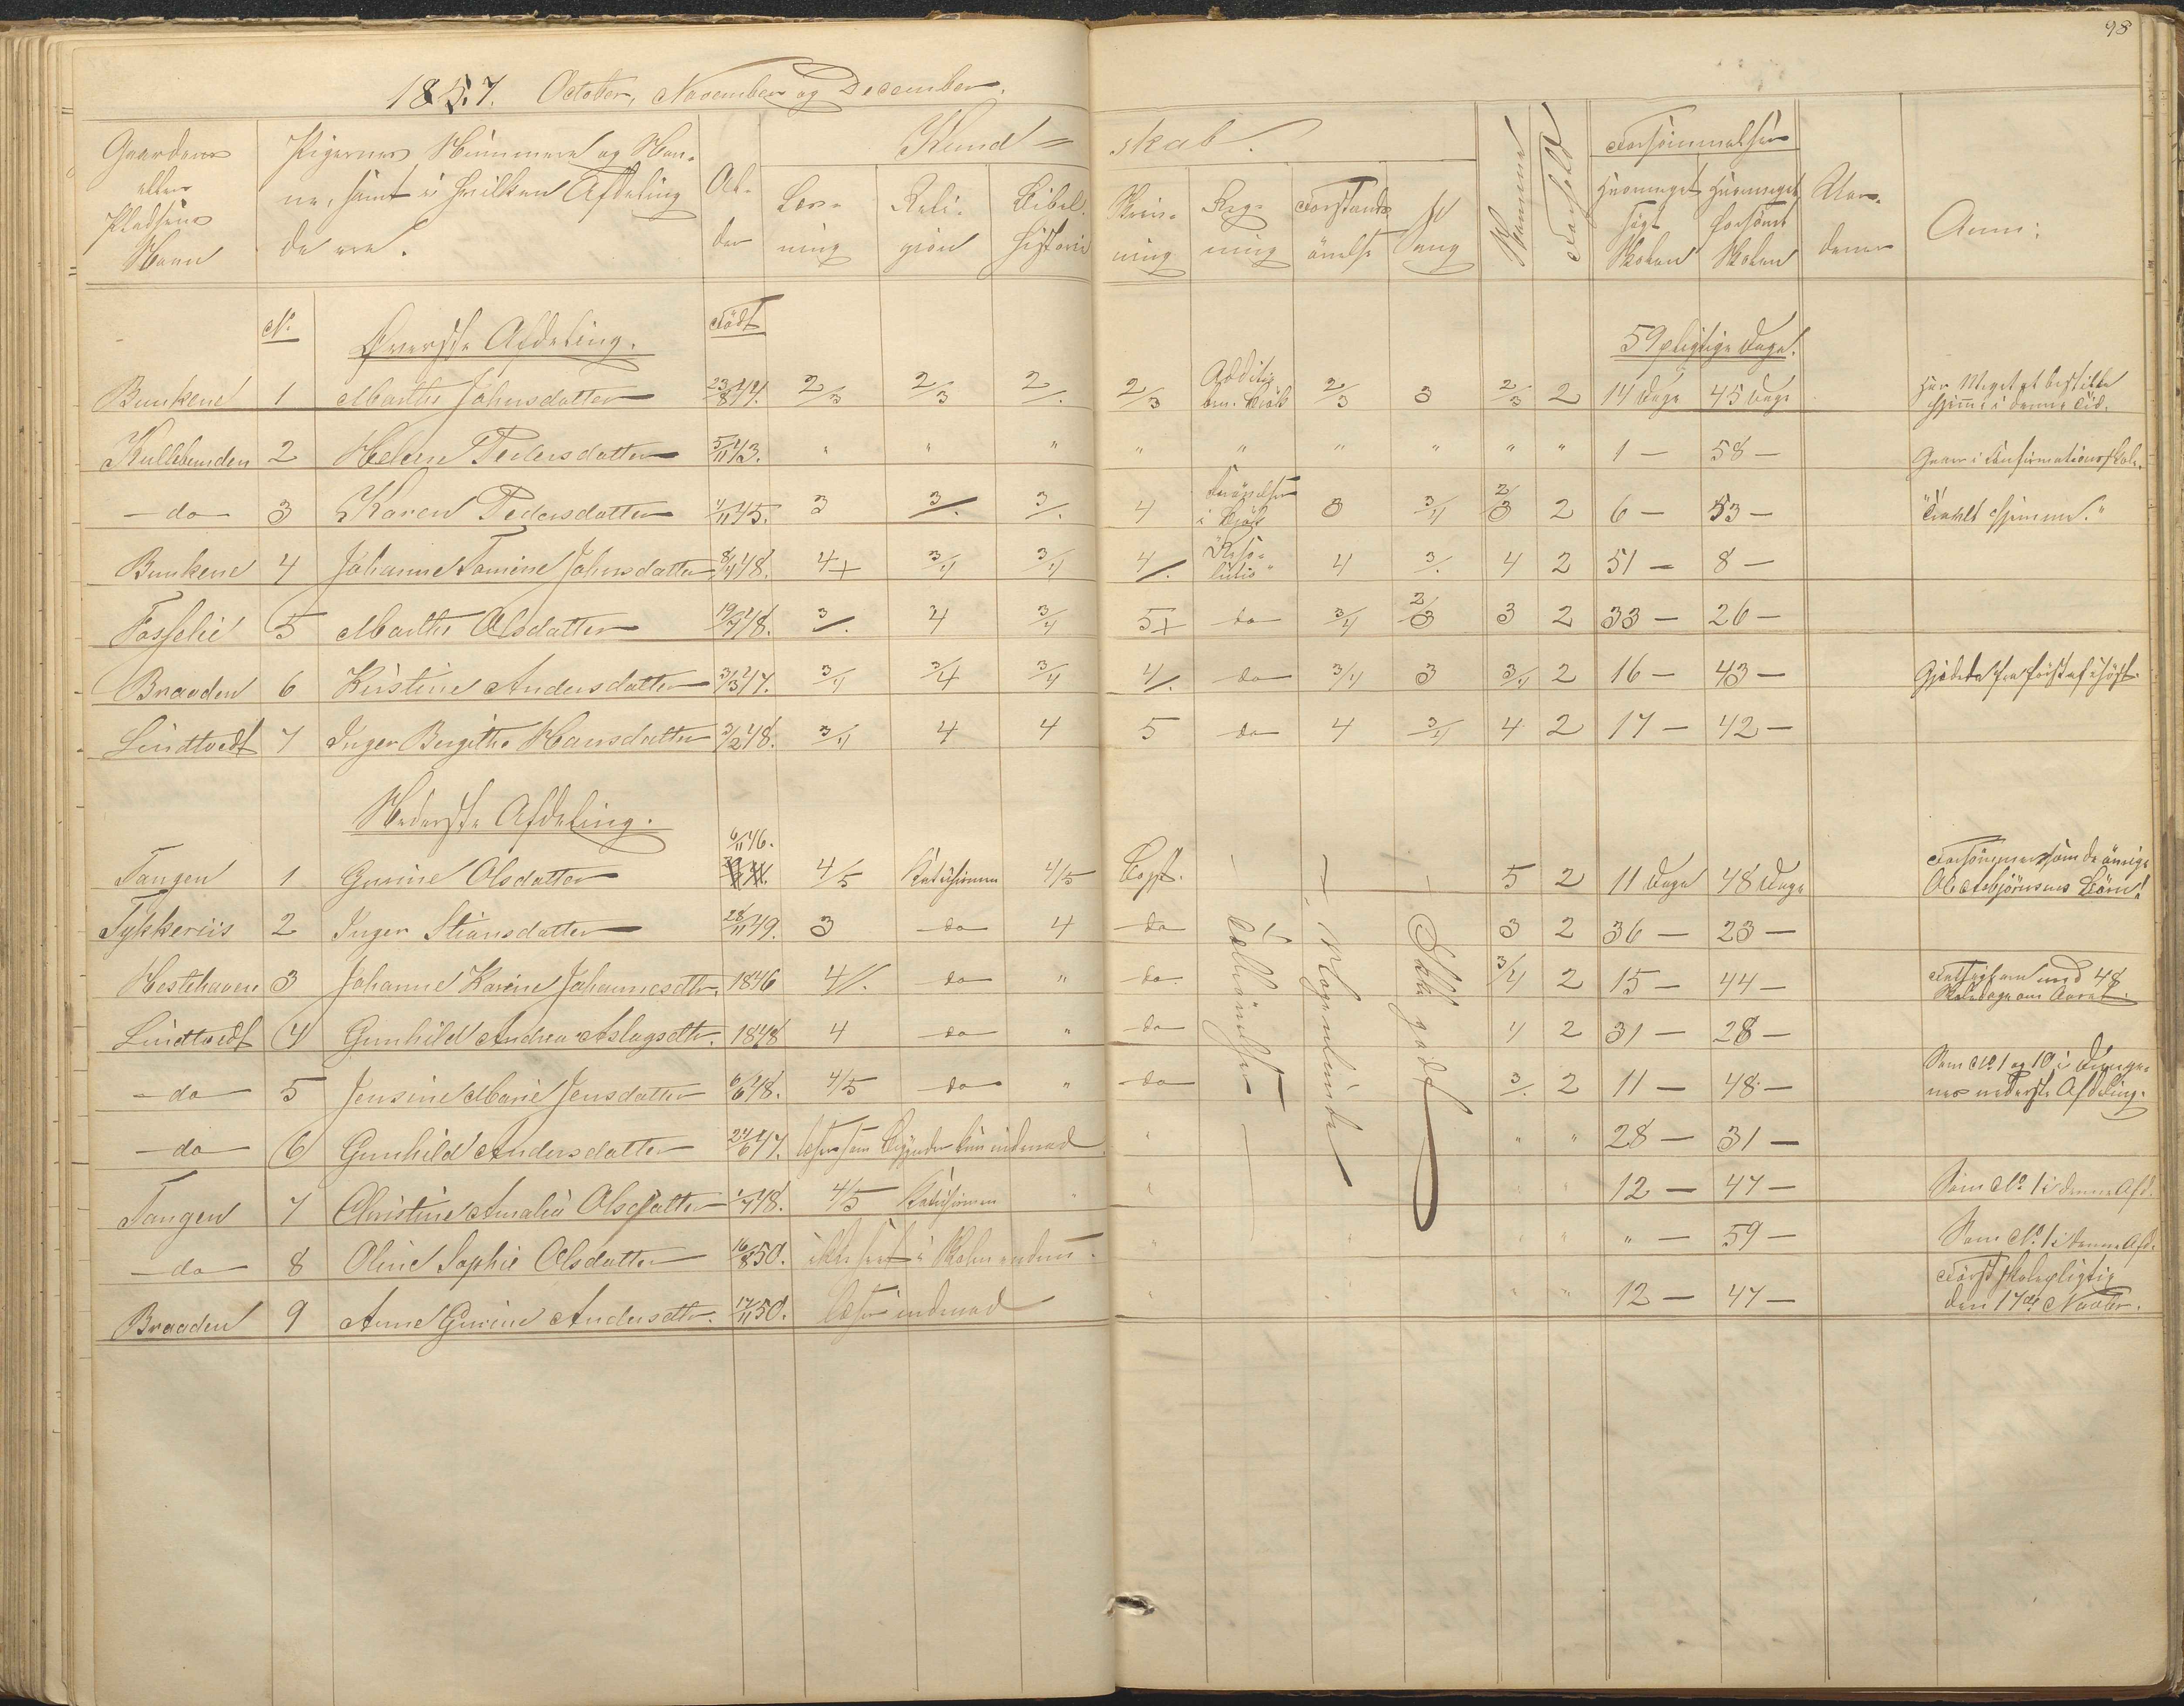 98
1857. October, November og December.
Gaardens eller Pladsens Navn
Pigernes Nummere og Navne, samt i hvilken Afdeling de ere.
Alder
Kundskab.
Læsning
Religion
Bibelhistorie
Skrivning
Regning
Forstandsøvelse
Sang
Evne
Forhold
Forsømmelser
Hvormeget søgt Skolen
Hvormeget forsømt Skolen
Anm:
No
Øverste Afdeling.
Født
59 pligtige Dage.
Bunkene 1 Marthe Johnsdatter 23/8 44. 2/3 2/3 2/. 2/3 Additio ben. Brøk 2/3 3 2/3 2 14 Dage 45 Dage Har Meget at bestille hjemme i denne Tid.
Kullebunden 2 Helene Pedersdatter 5/11 43. " " " " " " " " " 1 — 58 — Gaaer i Confirmationsskole.
— do — 3 Karen Pedersdatter 1/11 45. 3 3/. 3/. 4 i Brøk 3 3/4 2/3 2 6 — 53 — hjemme."
Bunkene 4 Johanne Tomine Johnsdatter 8/4 48. 4+ 3/4 3/4 4/. Resolutio" 4 3/. 4 2 51 — 8 —
Fosselie 5 Marthe Olsdatter 19/7 48. 3/. 4 3/4 5+ do 3/4 2/3 3 2 33 — 26 —
Braaden 6 Kirstine Andersdatter 3/3 47. 3/4 3/4 3/4 4/. do 3/4 3 3/4 2 16 — 43 — Gjædede
Lindtvedt 7 Inger Birgithe Hansdatter 3/2 48. 3/4 4 4 5 do 4 3/4 4 2 17 — 42 —
Nederste Afdeling.
6/11 46.
Tangen 1 Gurine Olsdatter 4/5 Katechismen 4/5 Bogst. 5 2 11 Dage 48 Dage Forsømmer som de øvrige Ol Asbjørnsens Børn!
Tykkeriis 2 Inger Stiansdatter 28/11 49. 3 do 4 do 3 2 36 — 23 —
Hestehaven 3 Johanne Karine Johannesdtr. 1846 4/. do " do 3/4 2 15 — 44 — med 48 Skoledage om Aaret.
Lindtvedt 4 Gunhild Andrea Aslagsdtr. 1848 4 do " do 4 2 31 — 28 —
— do — 5 Jensine Marie Jensdatter 6/6 48. 4/5 do " do 3/. 2 11 — 48 — Som No 1 og 10 i Drengenes nederste Afdeling.
— do — 6 Gunhild Andersdatter 24/6 47. læser som Begynder kun indenad " " " 28 — 31 —
Tangen 7 Christine Amalia Olsdatter 1/7 48. 4/5 Katechismen " " " " 12 — 47 — Som No. 1 i denne Afd.
— do — 8 Oline Sophie Olsdatter 16/8 50. ikke seet i Skolen endnu. " " " " — 59 — Som No. 1 i denne Afd.
Braaden 9 Anne Gurine Andersdtr. 17/11 50. læser indenad " " " 12 — 47 — Først skolepligtig den 17de Novbr.
Talløvelser
Morgenlinde
Ikke godt